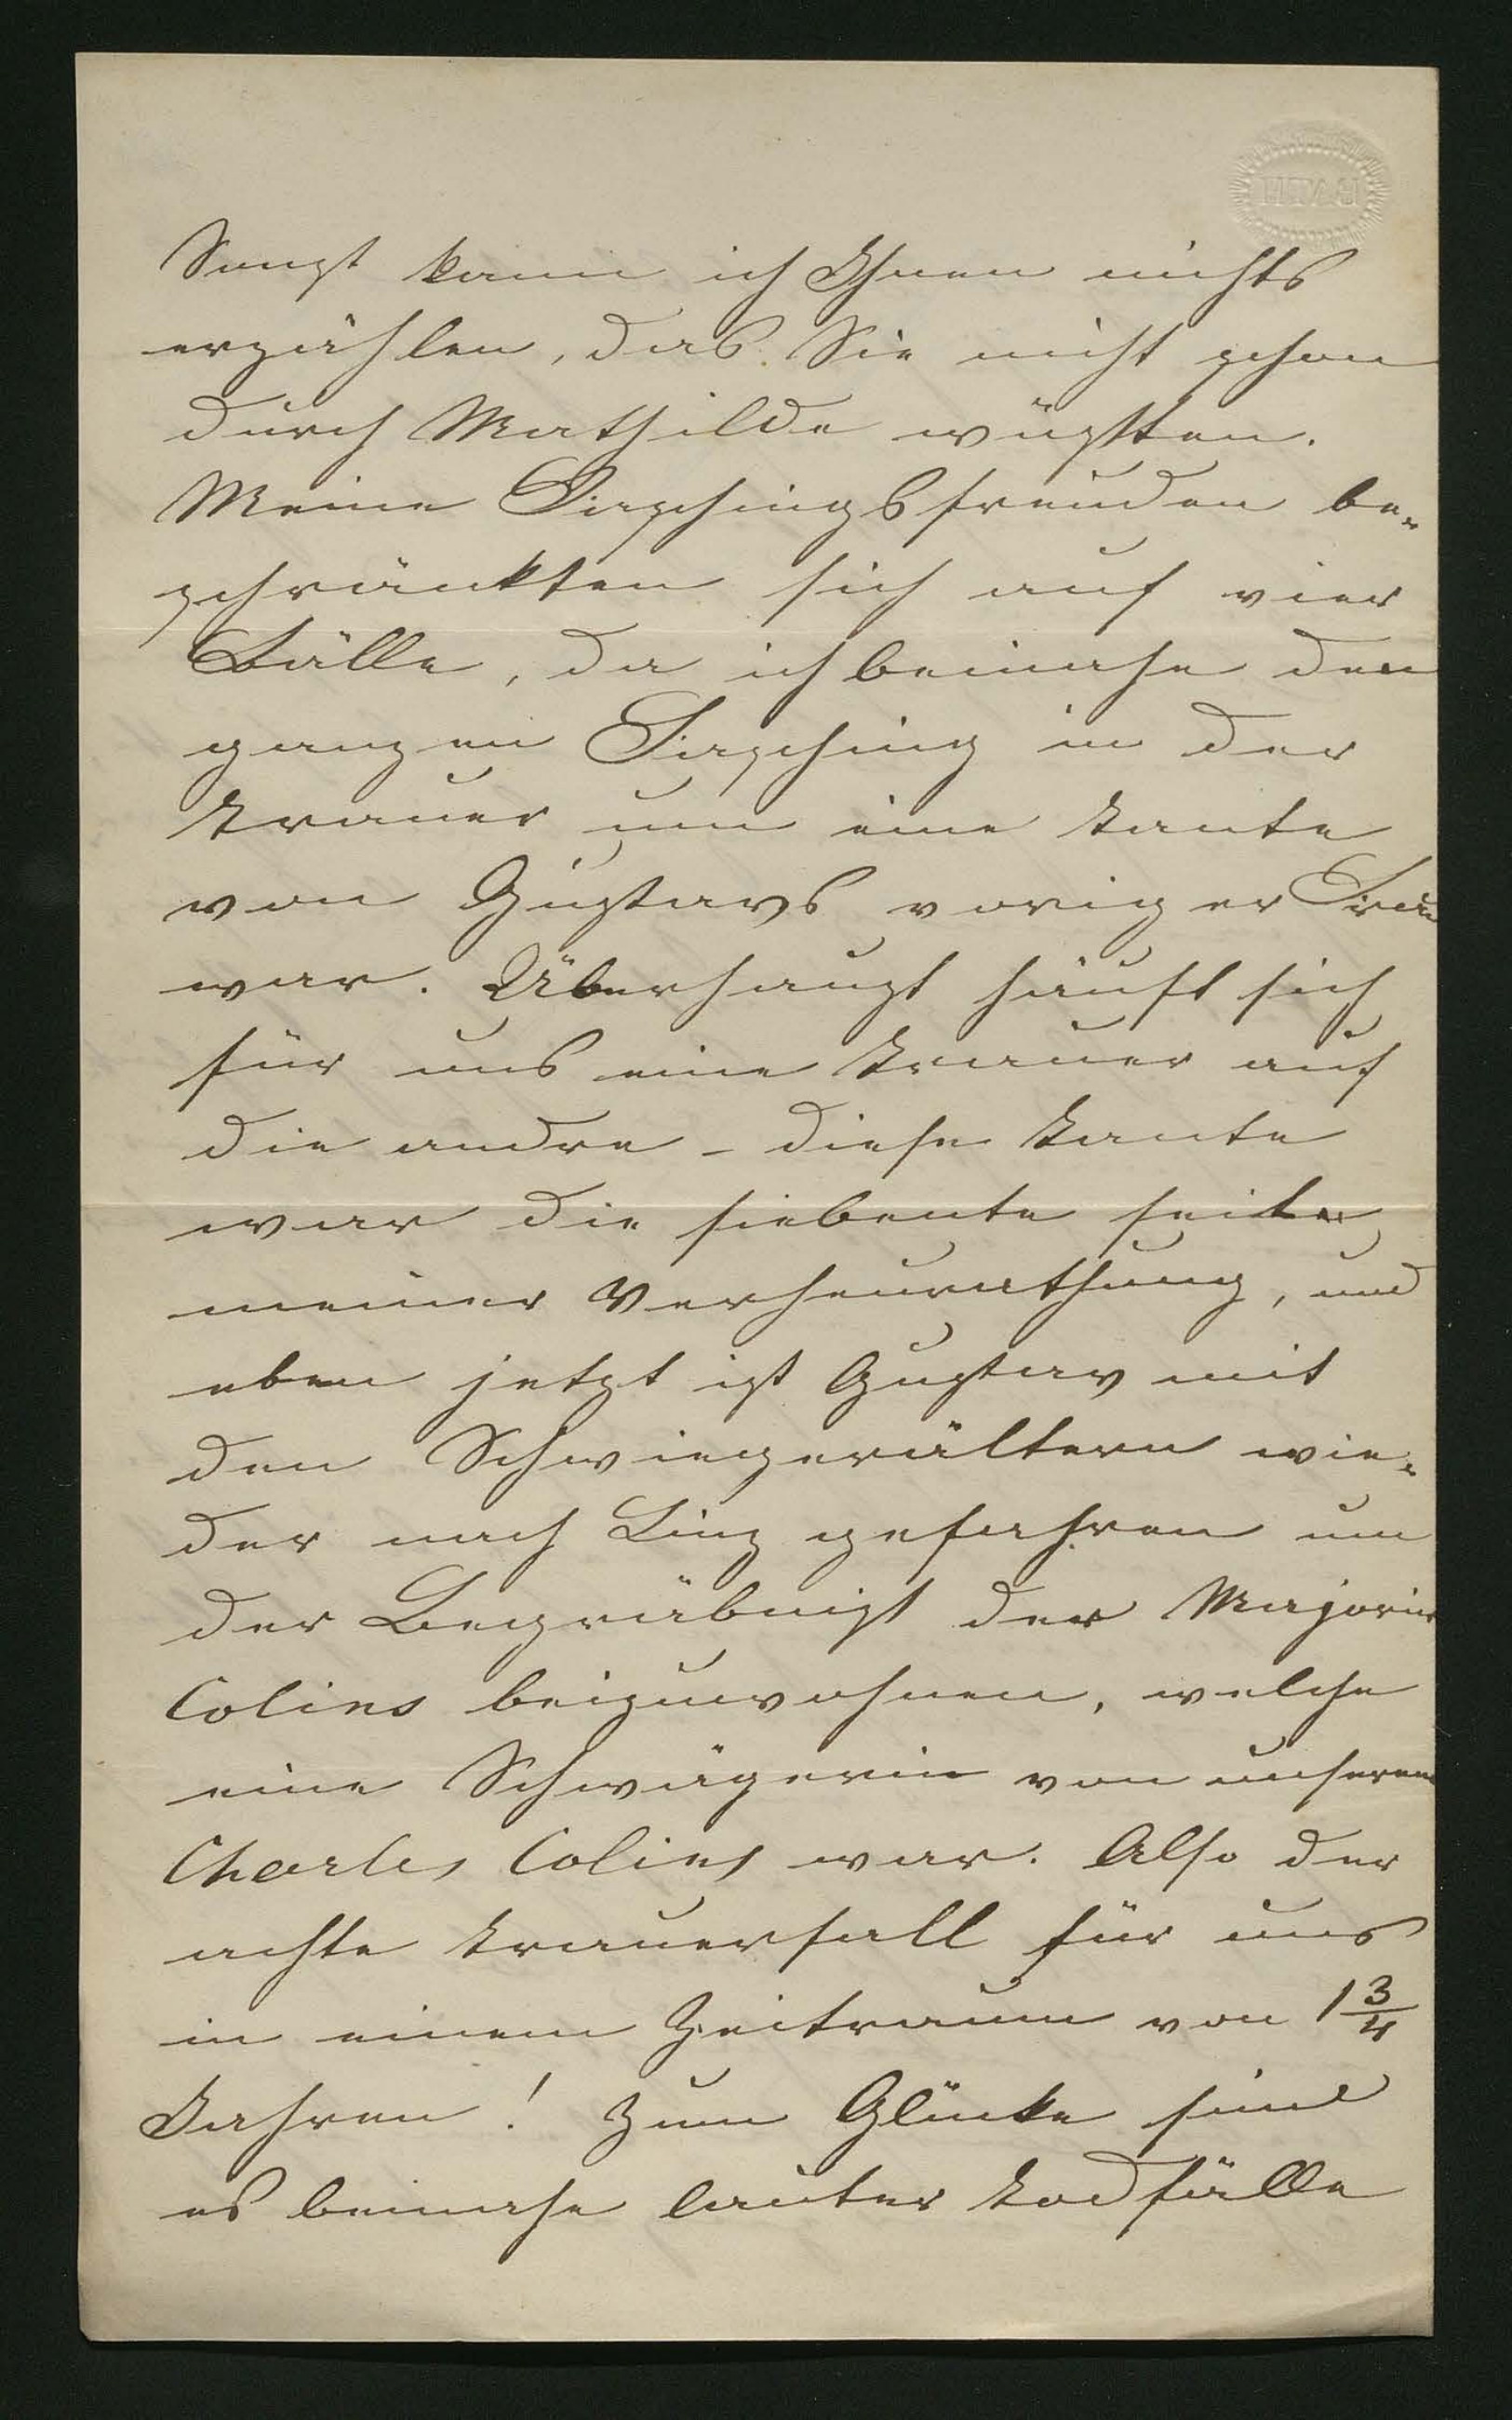 BATH
Sonst kann ich Ihnen nichts
erzählen, das Sie nicht schon
durch Mathilde wüßten.
Meine Faschingsfreuden be-
schränkten sich auf vier
Bälle, da ich beinahe den
ganzen Fasching in der
Trauer um eine Tante
von Gustavs voriger Frau
war. Überhaupt häuft sich
für uns eine Trauer auf
die andre – diese Tante
war die siebente seit
meiner Verheurathung, und
eben jetzt ist Gustav mit
den Schwiegerältern wie-
der nach Linz gefahren um
der Begräbnißt der Majorin
Colins beizuwohnen, welche
eine Schwägerin von unserem
Charles Colins war. Also der
achte Trauerfall für uns
in einem Zeitraum von 1 3/4
Jahren! Zum Glücke sind
es beinahe lauter Todfälle